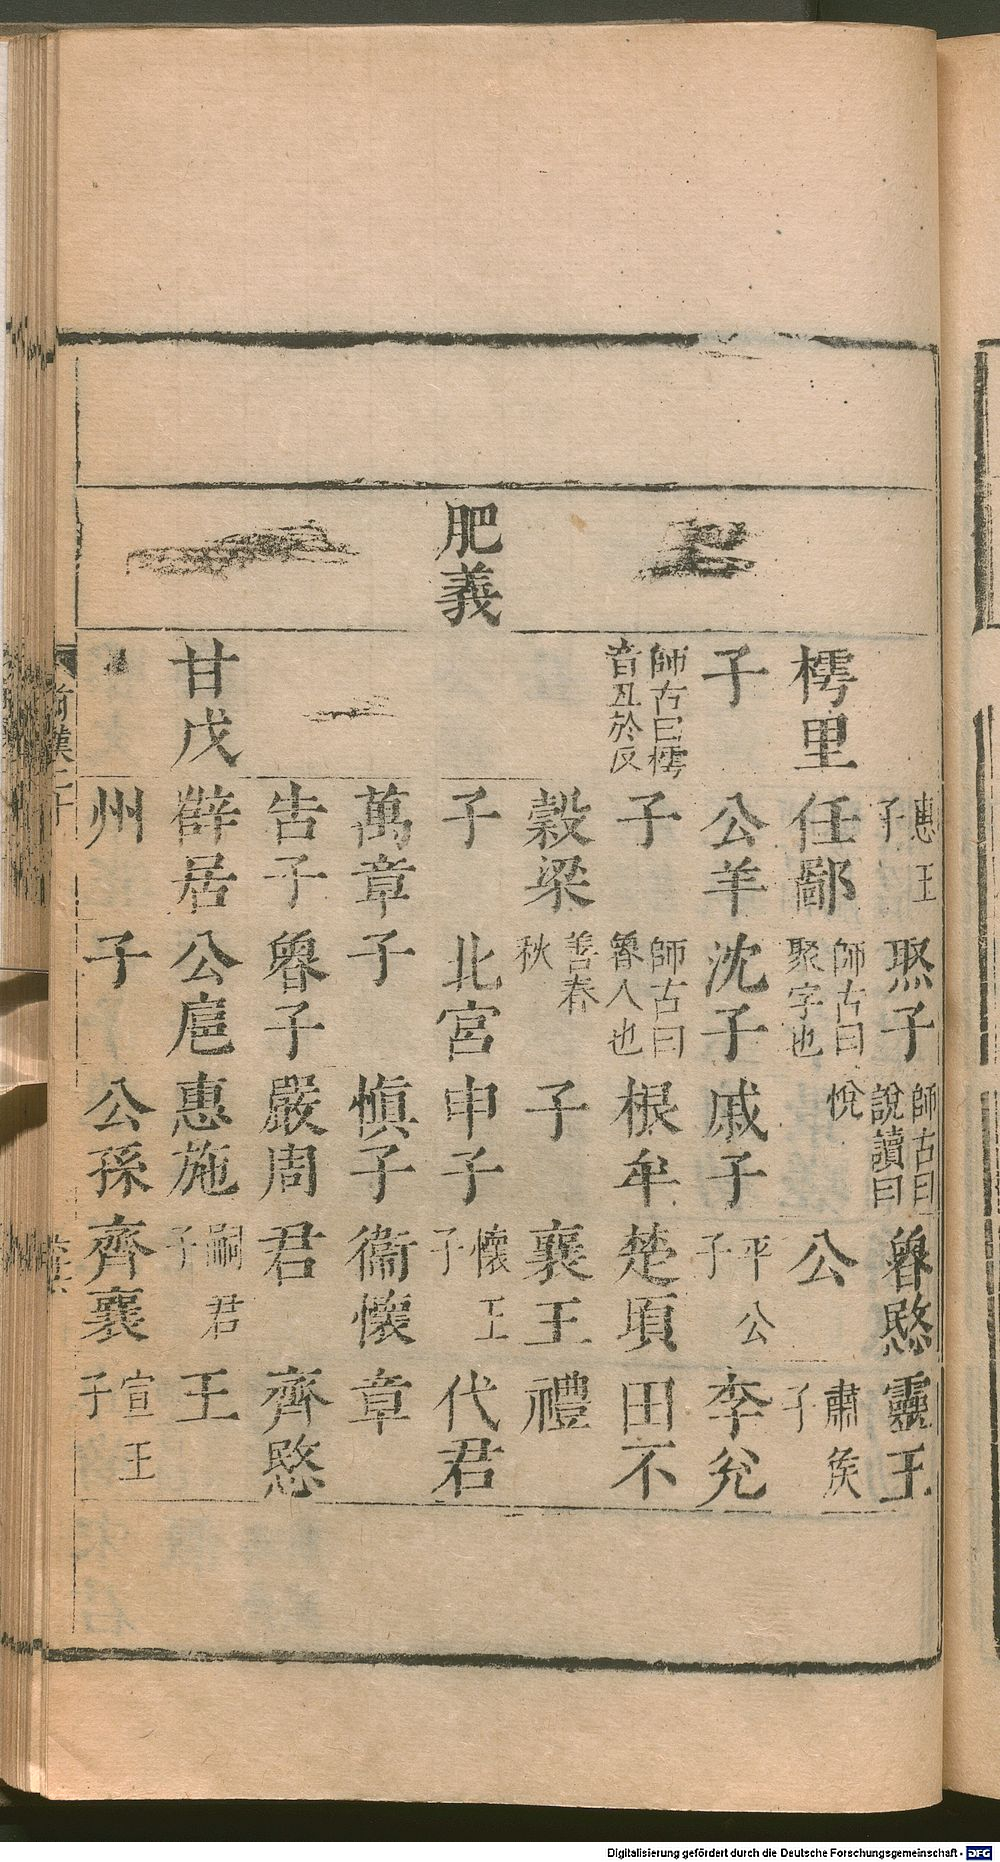 惠王子 焣子 師古曰說讀曰 魯愍 靈王
樗里 任鄙 師古曰聚字也 悅 公 肅侯子
子 公羊 沈子 戚子 平公子 李兊
師古曰樗音丑於反 子 師古曰魯人也 根牟 楚頃 田不
榖梁 善春秋 子 襄王 禮
肥義 子 北宮 申子 懷王子 代君
萬章 子 愼子 衞懷 章
告子 魯子 嚴周 君 齊愍
甘戊 薛居 公扈 惠施 嗣君子 王
州 子 公孫 齊襄 宣王子
前漢二十
Digitalisierung gefördert durch die Deutsche Forschungsgemeinschaft - DFG